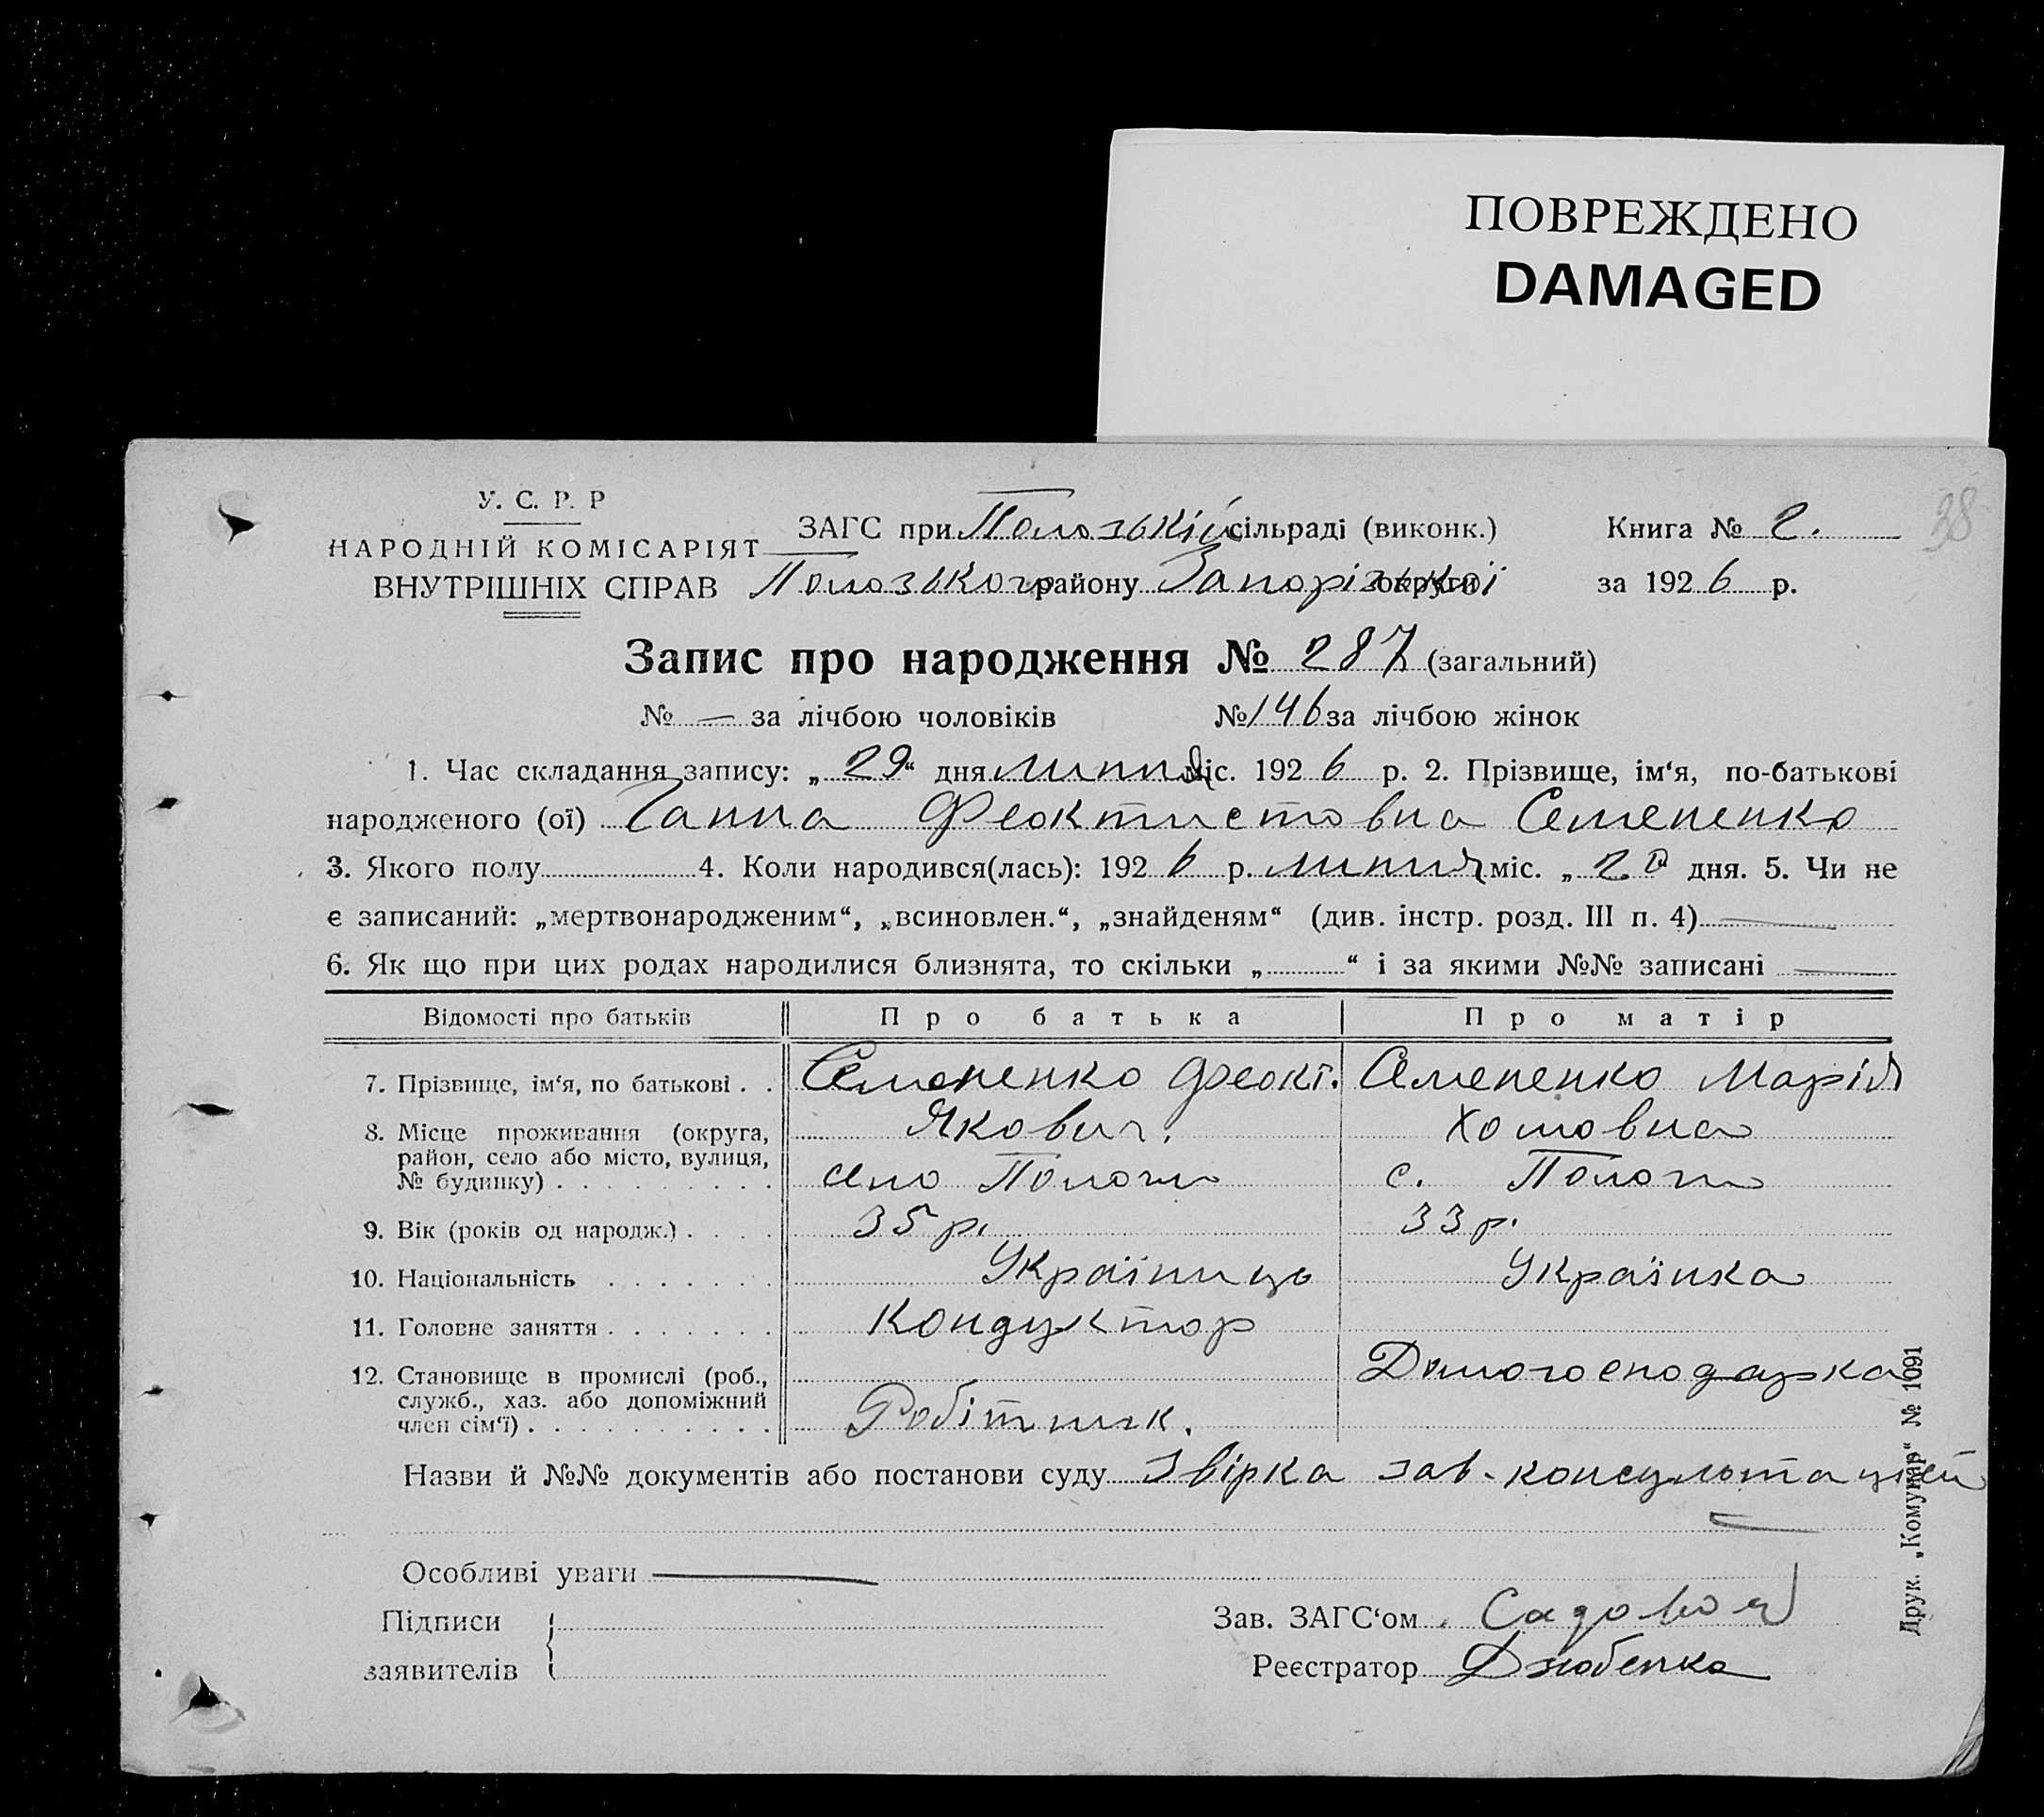 ПОВРЕЖДЕНО
DAMAGED
38
У. С. Р. Р
НАРОДНІЙ КОМІСАРІЯТ
ВНУТРІШНІХ СПРАВ
ЗАГС при Пологзькій сільраді (виконк.)
Книга № 2.
Пологзького району Запорізької округи
за 1926 р.
Запис про народження № 287 (загальний)
№ — за лічбою чоловіків №146 за лічбою жінок
1. Час складання запису: „29“ дня липня міс. 1926 р. 2. Прізвище, ім‘я, по-батькові
народженого (ої) Ганна Феоктистовна Семененко
3. Якого полу 4. Коли народився(лась): 1926 р. липня міс. „20 дня. 5. Чи не
є записаний: „мертвонародженим“, „всиновлен.“, „знайденям“ (див. інстр. розд. III п. 4) —
6. Як що при цих родах народилися близнята, то скільки „ “ і за якими №№ записані —
Відомості про батьків Про батька Про матір
7. Прізвище, ім‘я, по батькові . . Семененко Феокт. Семененко Марія
Якович. Хомовна
8. Місце проживання (округа,
район, село або місто, вулиця,
№ будинку) . . . . . . . . . село Пологи с. Пологи
9. Вік (років од народж.) . . . . 35 р. 33 р.
10. Національність . . . . . . . Українець Українка
11. Головне заняття . . . . . . . Кондуктор
12. Становище в промислі (роб.,
служб., хаз. або допоміжний
член сім‘ї) . . . . . . . . . . Робітник. Домогосподарка
Назви й №№ документів або постанови суду звірка зав. консультацией
Особливі уваги —
Підписи
заявителів
Зав. ЗАГС‘ом Садовой
Реєстратор Дзюбенко
Друк. „Комунар“ № 1091